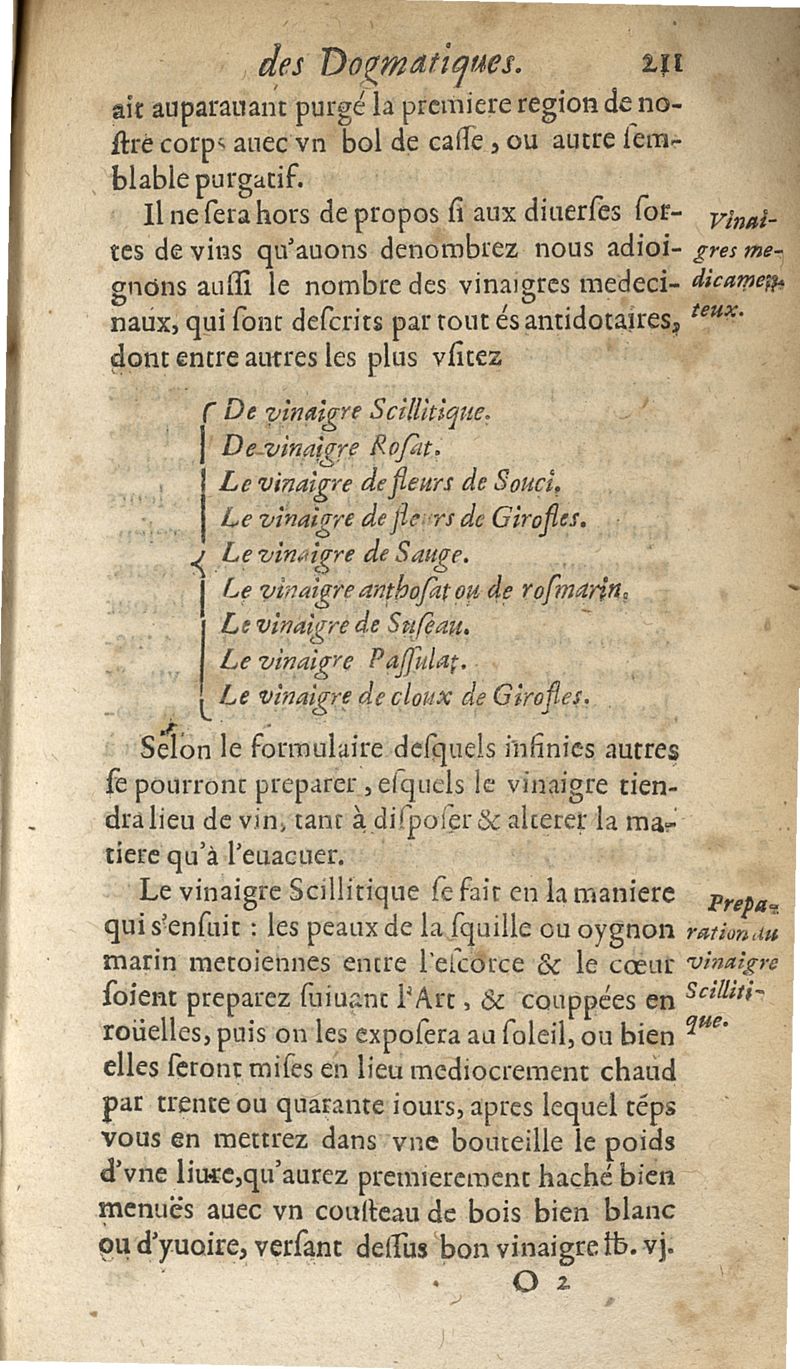 des Dogmatiques. 211
ait auparauant purgé la premiere region de no-
ſtre corps auec vn bol de caſſe, ou autre ſem-
blable purgatif.
Il ne ſera hors de propos ſi aux diuerſes ſor-
tes de vins qu'auons denombrez nous adioi-
gnons auſſi le nombre des vinaigres medeci-
naux, qui ſont deſcrits par tout és antidotaires,
dont entre autres les plus vſitez
Vinai-
gres me-
dicamen-
teux.
De vinaigre Scillitique.
De vinaigre Roſat.
Le vinaigre de fleurs de Souci.
Le vinaigre de fleurs de Girofles.
Le vinaigre de Sauge.
Le vinaigre anthoſat ou de roſmarin.
Le vinaigre de Suſeau.
Le vinaigre Paſſulat.
Le vinaigre de cloux de Girofles.
Selon le formulaire deſquels infinies autres
ſe pourront preparer, eſquels le vinaigre tien-
dra lieu de vin, tant à diſpoſer & alterer la ma-
tiere qu'à l'euacuer.
Le vinaigre Scillitique ſe fait en la maniere
qui s'enſuit : les peaux de la ſquille ou oygnon
marin metoiennes entre l'eſcorce & le cœur
ſoient preparez ſuiuant l'Art, & couppées en
roüelles, puis on les expoſera au ſoleil, ou bien
elles ſeront miſes en lieu mediocrement chaud
par trente ou quarante iours, apres lequel tẽps
vous en mettrez dans vne bouteille le poids
d'vne liure, qu'aurez premierement haché bien
menuës auec vn couſteau de bois bien blanc
ou d'yuoire, verſant deſſus bon vinaigre ℔. vj.
Prepa-
ration du
vinaigre
Scilliti-
que.
O 2